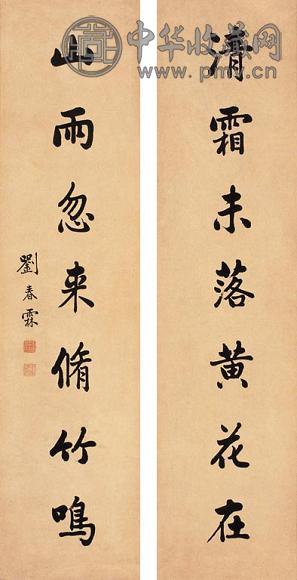 清霜未落黄花在
山雨忽来脩竹鳴
劉春霖
中华收藏网
www.pmw.cn